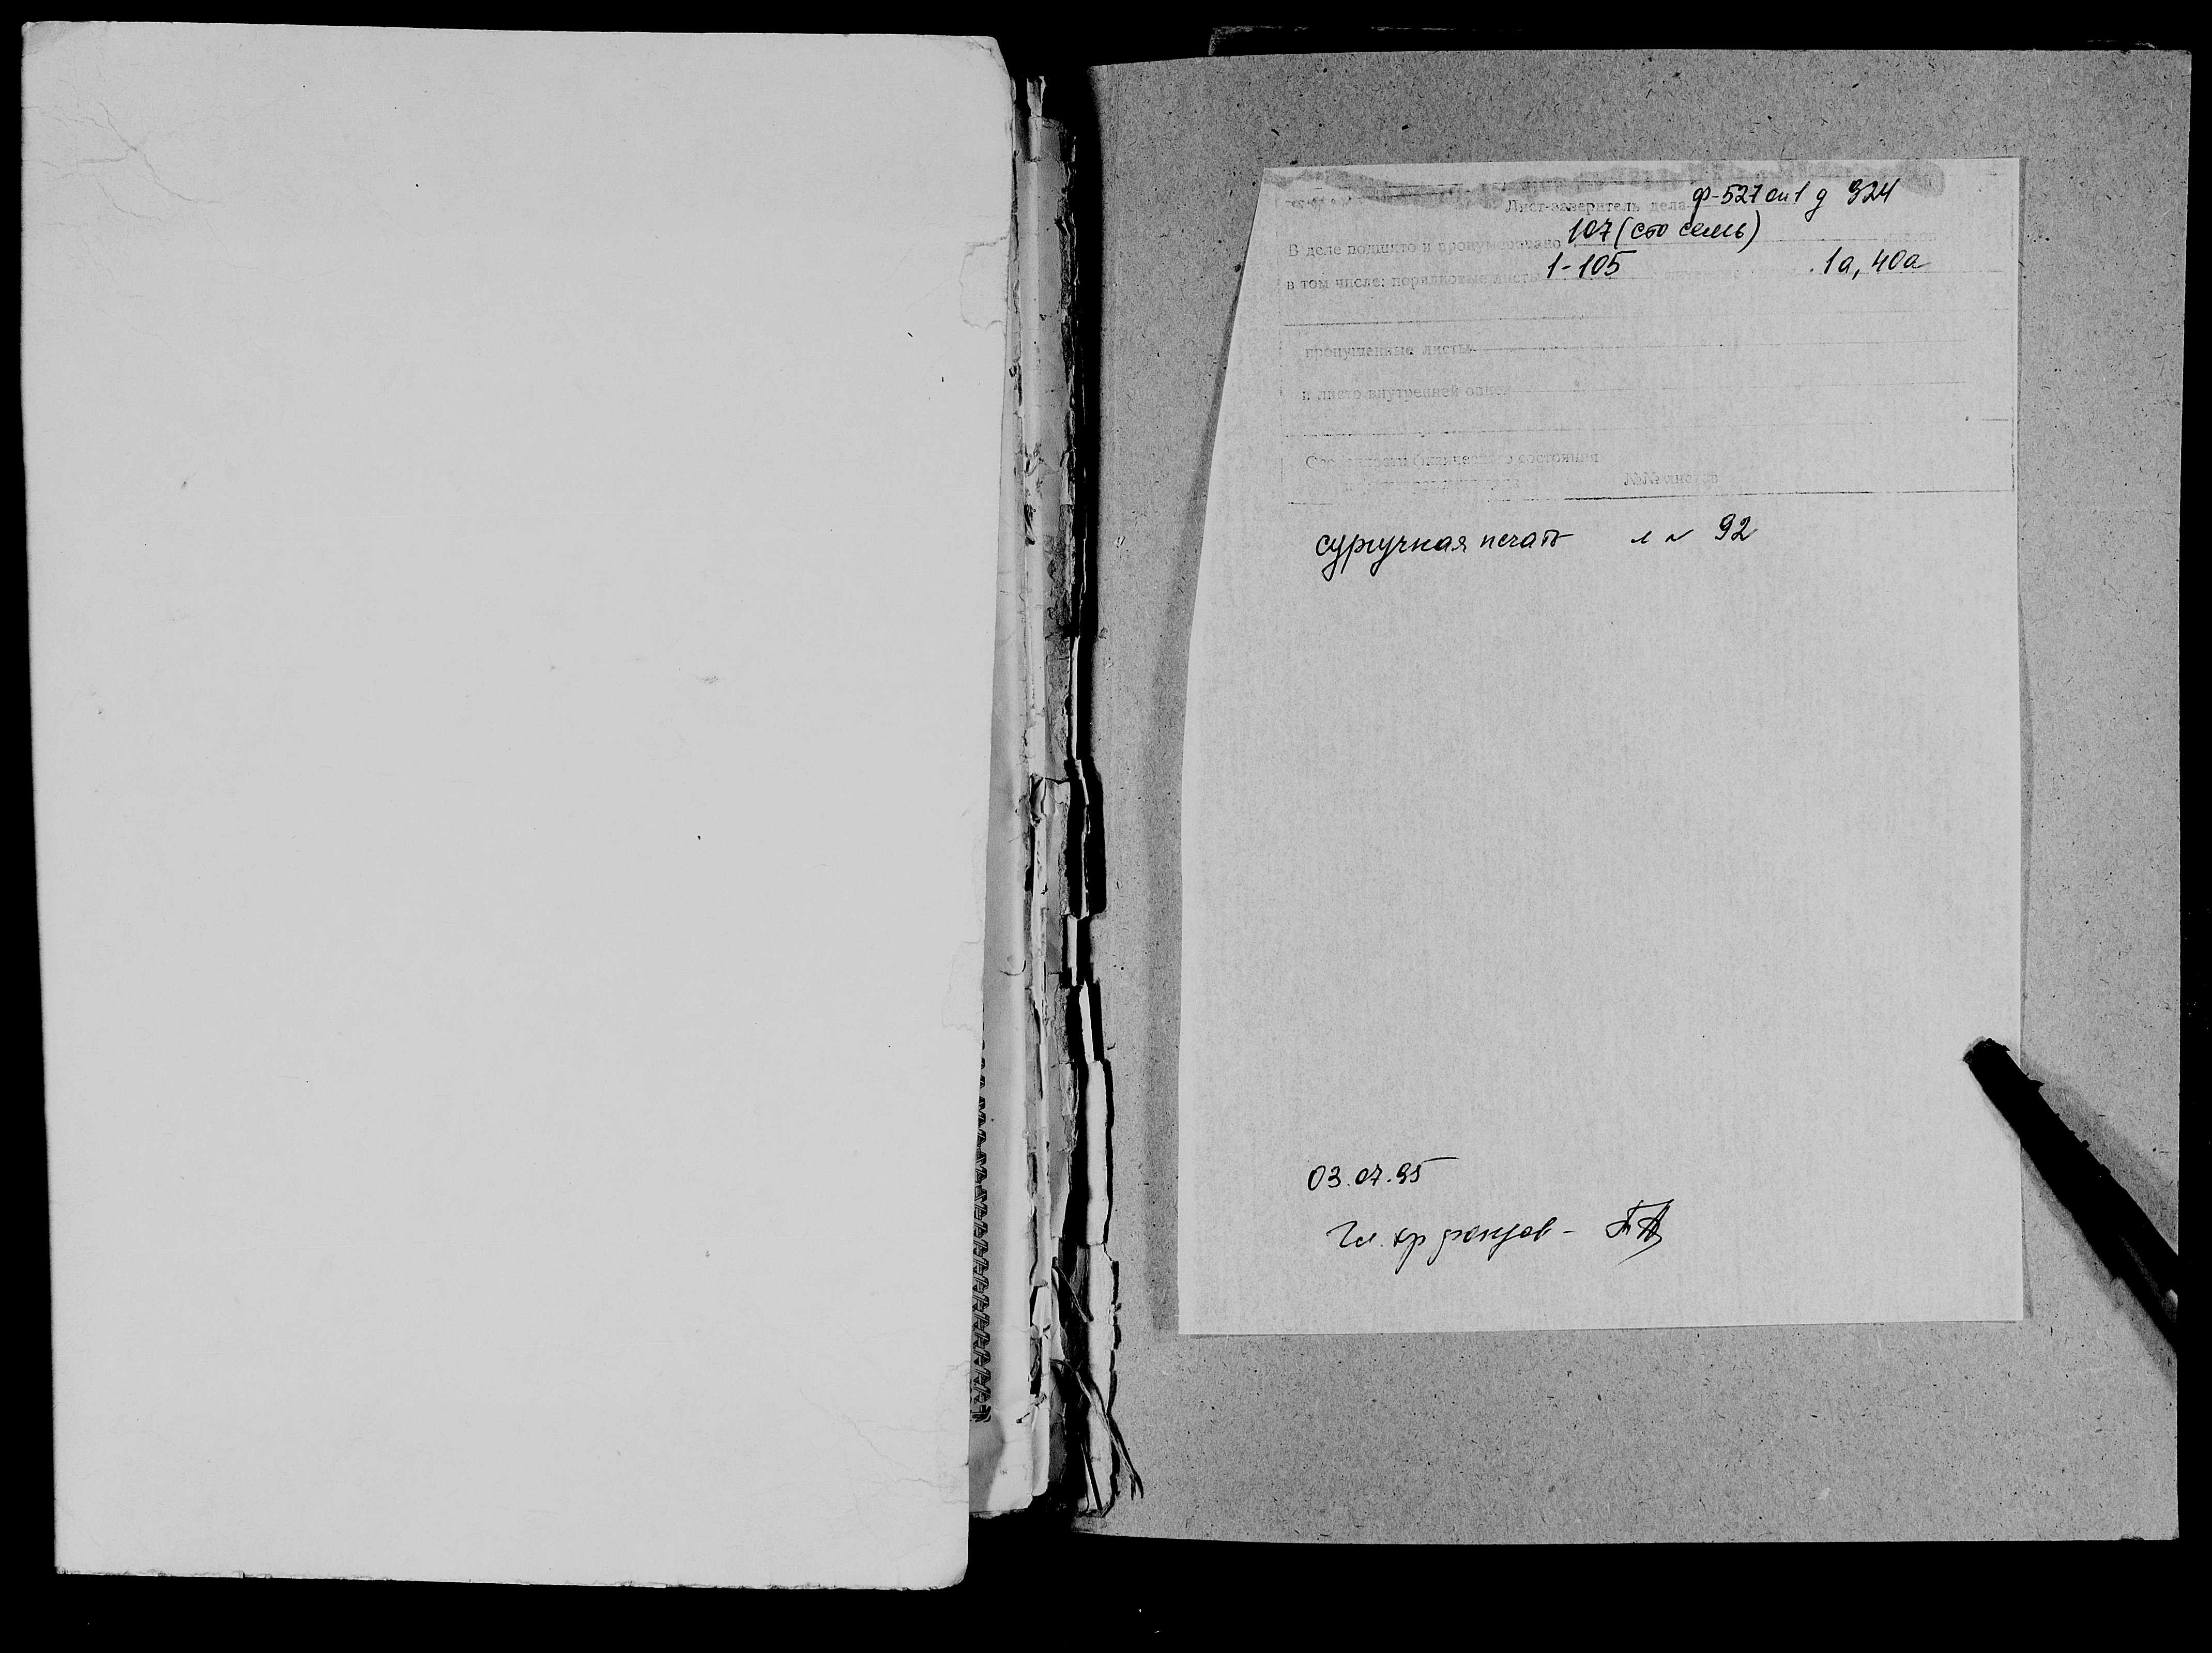 Лист-заверитель дела ф-527 оп 1 д 324
В деле подшито и пронумеровано 107 (сто семь)
в том числе: порядковые листы 1-105 1а, 40а
пропущенные листы
и листо внутренней описи
физического состояния
№№ листов
сургучная печать л n 92
03.07.95
Гл. хр фондов -